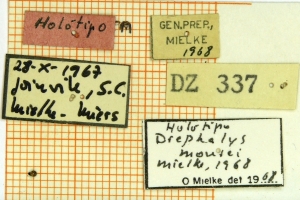 Holótipo
GEN. PREP.,
MIELKE
1968
28-X-1967
Joinvile, S.C.
Mielke - Miers
DZ 337
Holótipo
Drephalys
mourei
Mielke, 1968
O Mielke det 1968.